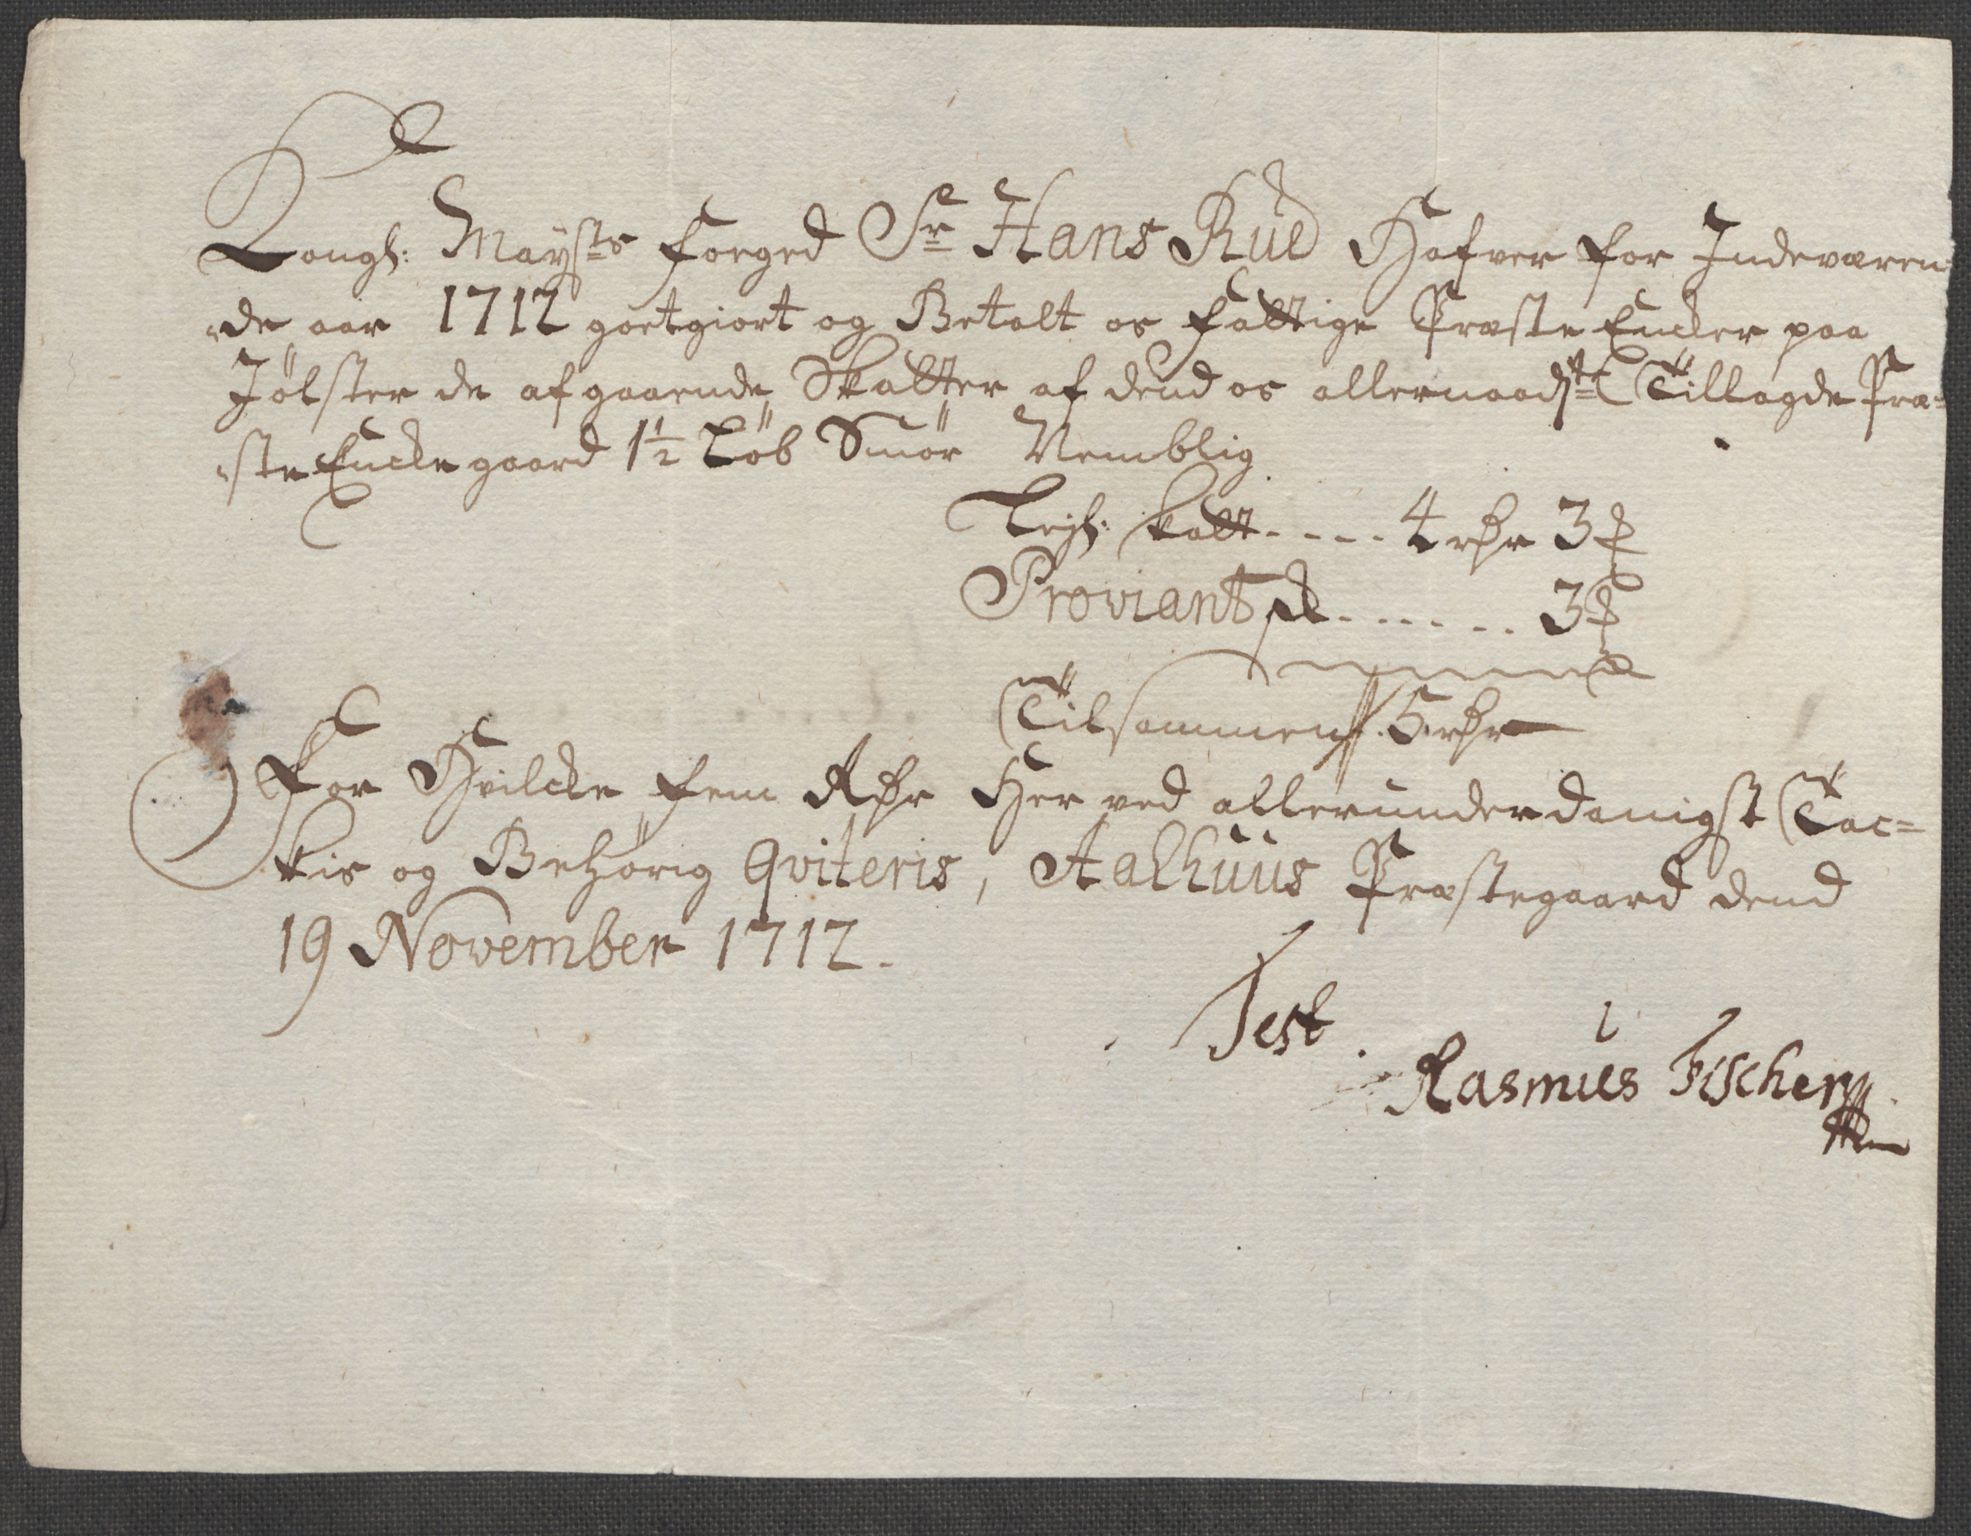 Kongl: Maysts foeged Sr Hans Rüd Hafver for Indeværen
de aar 1712 godtgiort og Betalt os fattige Præste Encker paa
Jölster de afgaaende Skatter af dend os allernaadste Tillagde Præ-
ste Enckegaard 1½ Löb Smör Nemblig
Lejl: skatt ----- 4 rdr 3 ß
Proviant ------- 3 ß
Tilsammen 5 rdr
For Hvilcke fem Rdr Her ved allerunderdanigst Tac=
kis og Behörig qviteris, Aalhuus Præstegaard dend
19 November 1712.
Test
Rasmus Fischer